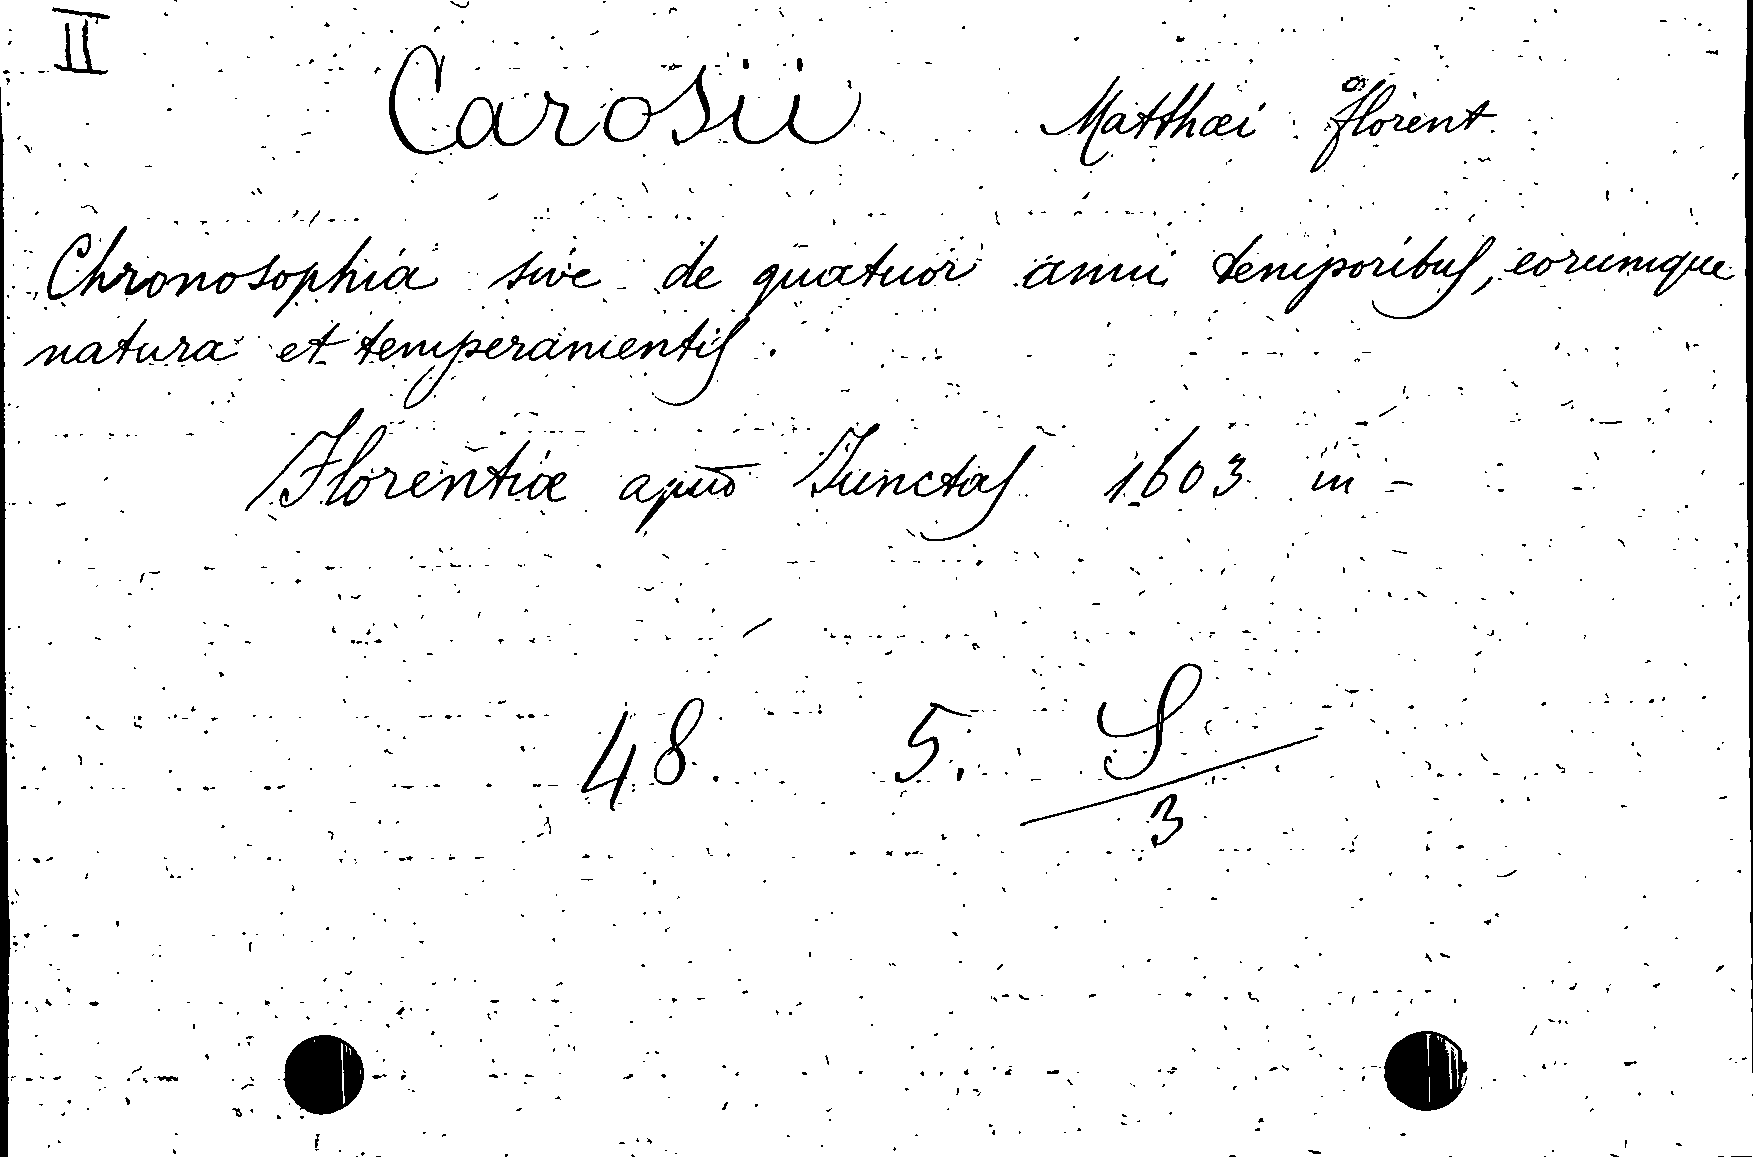 II
Carosii Matthæi Florent.
Chronosophia sive de quatuor anni temporibus, eorumque
natura et temperamentis.
Florentiæ apud Junctas 1603 in -
48. 5. S
3